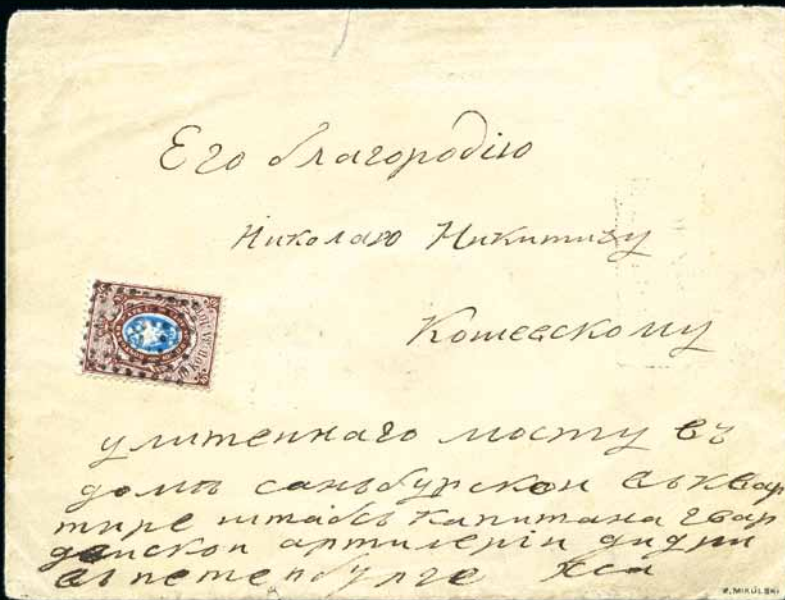 Его благородію
Николаю Никитичу
Кошевскому
улитеннаго мосту въ
домѣ саньбурскои вьквар
тире штабсь капитана гвар
дейскои артилеріи
вьпетенбулге
Z. MIKULSKI